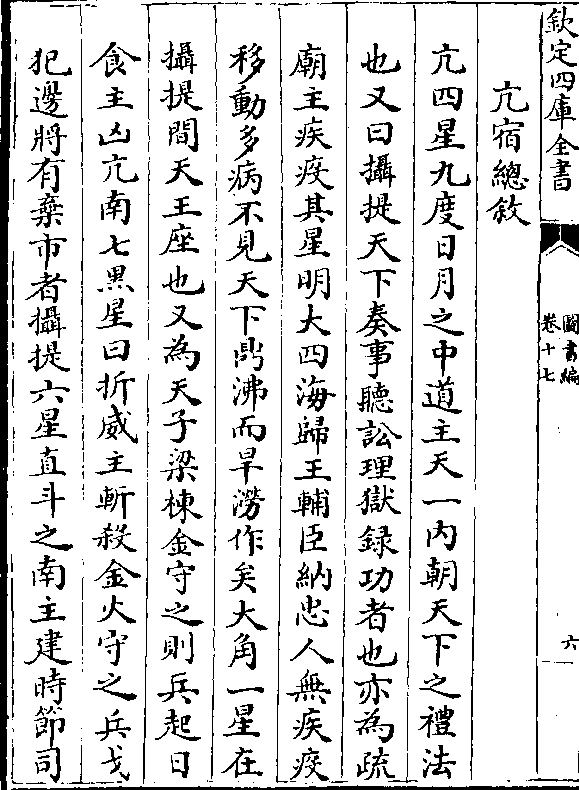 欽定四庫全書
圖書編
卷十七
六
亢宿總敘
亢四星九度日月之中道主天一内朝天下之禮法
也又曰攝提天下奏事聽訟理獄録功者也亦為疏
廟主疾疫其星明大四海歸王輔臣納忠人無疾疫
移動多病不見天下鼎沸而旱澇作矣大角一星在
攝提間天王座也又為天子梁棟金守之則兵起日
食主凶亢南七黒星曰折威主斬殺金火守之兵戈
犯邊將有棄市者攝提六星直斗之南主建時節司